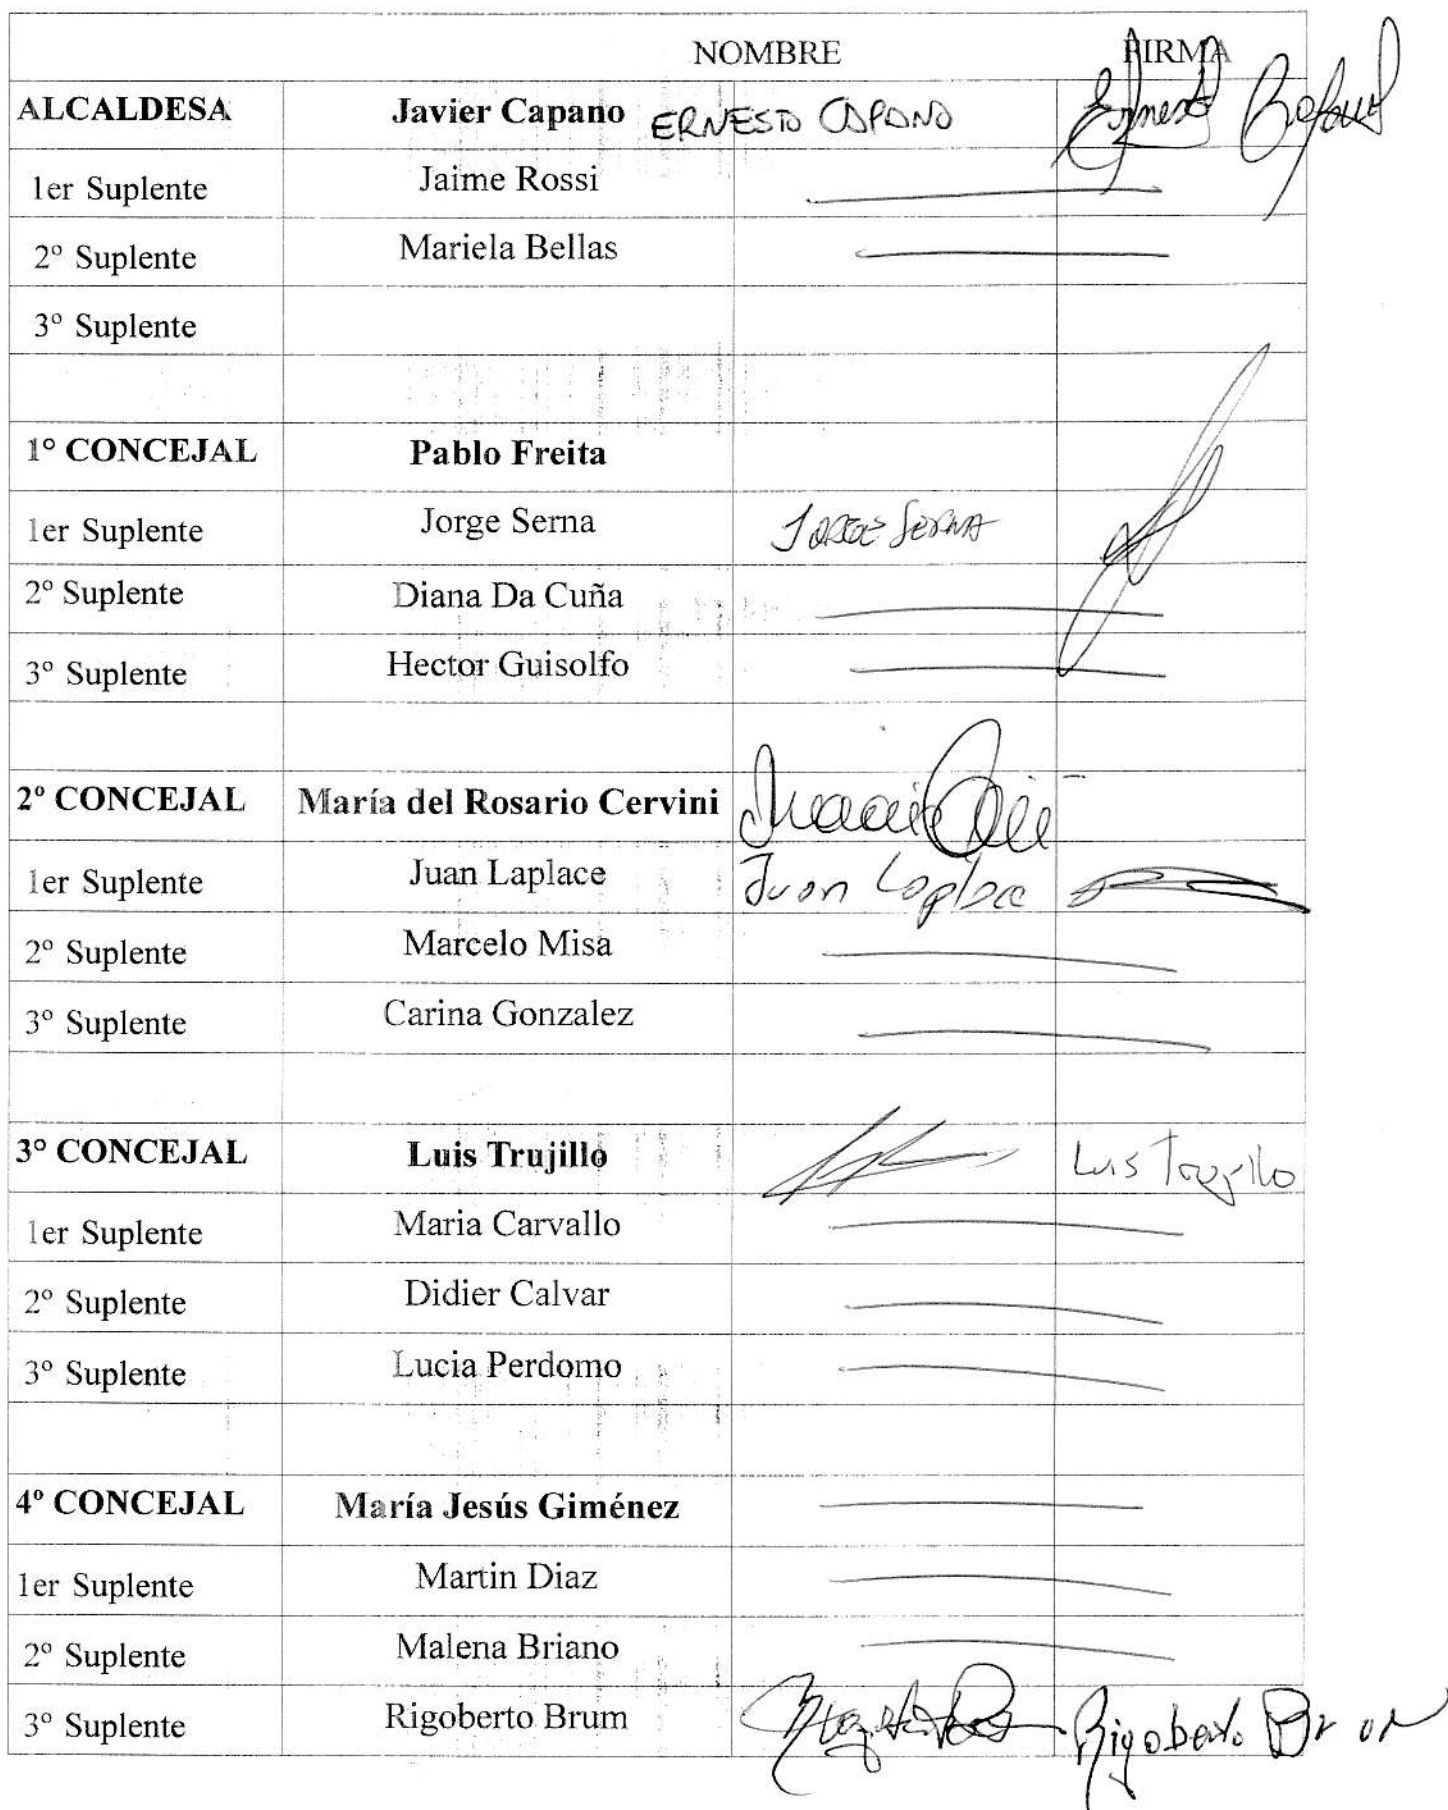 NOMBRE FIRMA
ALCALDESA Javier Capano ERNESTO CAPANO Ernesto
1er Suplente Jaime Rossi
2º Suplente Mariela Bellas
3º Suplente
1º CONCEJAL Pablo Freita
1er Suplente Jorge Serna JORGE SERNA
2º Suplente Diana Da Cuña
3º Suplente Hector Guisolfo
2º CONCEJAL María del Rosario Cervini
1er Suplente Juan Laplace Juan Laplace
2º Suplente Marcelo Misa
3º Suplente Carina Gonzalez
3º CONCEJAL Luis Trujillo Luis Trujillo
1er Suplente Maria Carvallo
2º Suplente Didier Calvar
3º Suplente Lucia Perdomo
4º CONCEJAL María Jesús Giménez
1er Suplente Martin Diaz
2º Suplente Malena Briano
3º Suplente Rigoberto Brum Rigoberto Brum